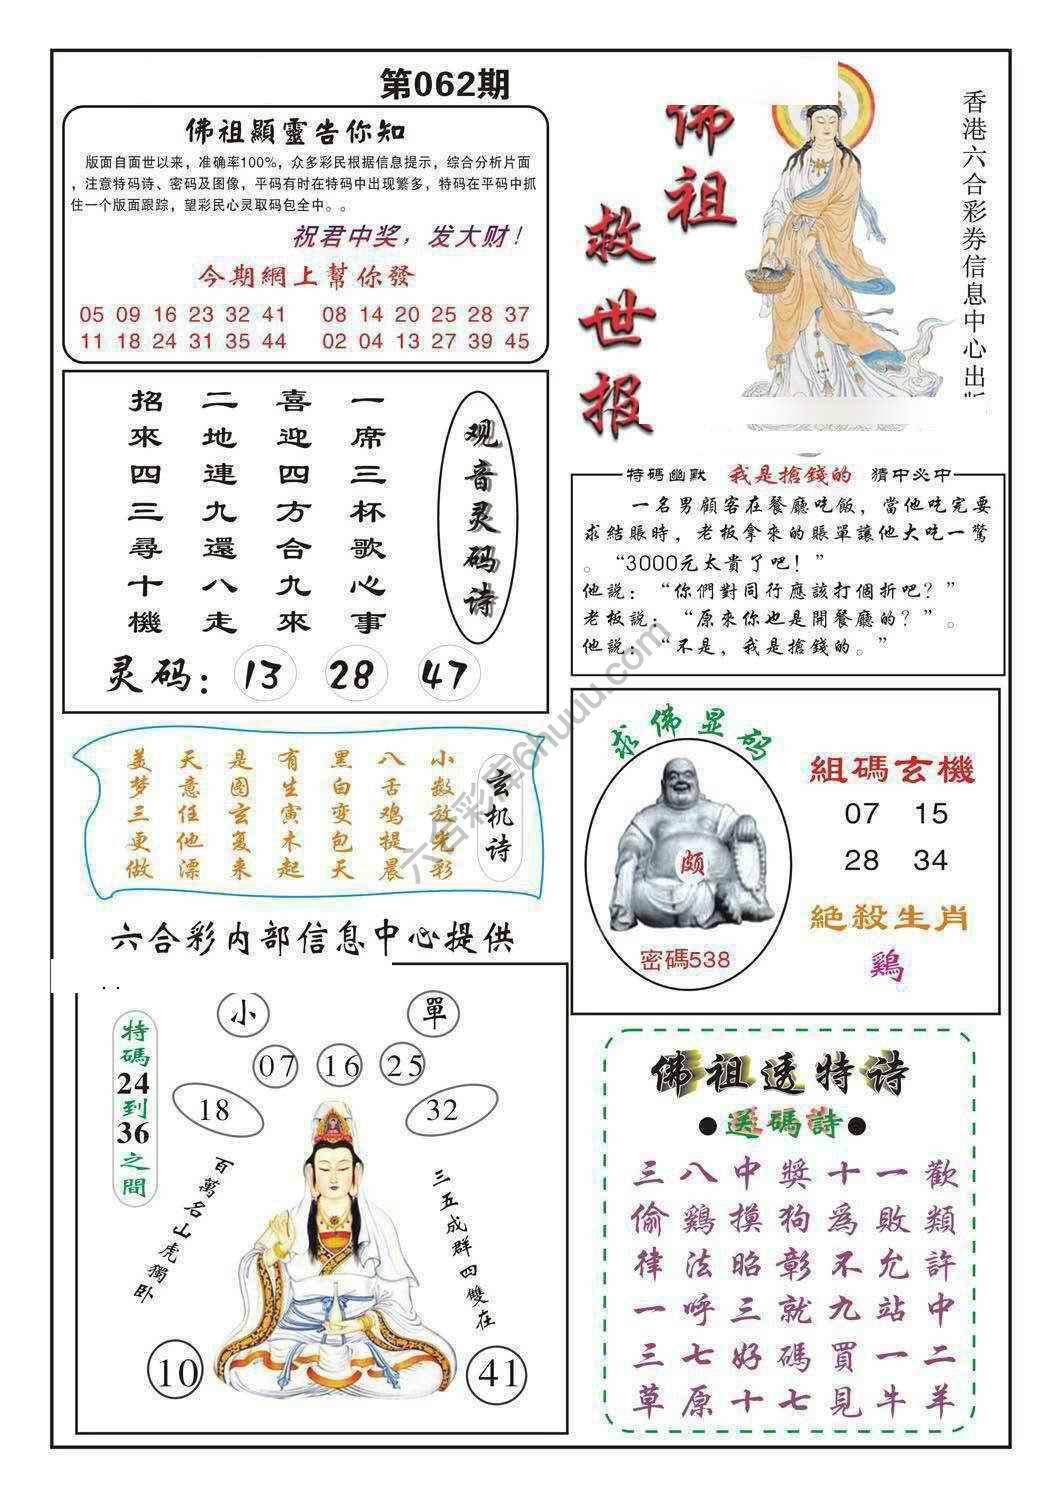 第062期
佛祖顯靈告你知
版面自面世以来，准确率100%，众多彩民根据信息提示，综合分析片面
，注意特码诗、密码及图像，平码有时在特码中出现繁多，特码在平码中抓
住一个版面跟踪，望彩民心灵取码包全中。。
祝君中奖，发大财！
今期網上幫你發
05 09 16 23 32 41 08 14 20 25 28 37
11 18 24 31 35 44 02 04 13 27 39 45
佛祖
救世报
香港六合彩券信息中心出版
观音灵码诗
一席三杯歌心事
喜迎四方合九來
二地連九還八走
招來四三尋十機
灵码：13 28 47
特碼幽默 我是搶錢的 猜中必中
一名男顧客在餐廳吃飯，當他吃完要
求結賬時，老板拿來的賬單讓他大吃一驚
。“3000元太貴了吧！”
他說：“你們對同行應該打個折吧？”
老板說：“原來你也是開餐廳的？”。
他說：“不是，我是搶錢的。”
玄机诗
小数放先彩
八舌鸡提晨
黑白变包天
有生寅木起
是图玄复来
天意任他漂
美梦三更做
六合彩内部信息中心提供
求佛显码
颇
密碼538
組碼玄機
07 15
28 34
絶殺生肖
鷄
小 單
07 16 25
18 32
特碼24到36之間
百萬名山虎獨卧
三五成群四雙在
10 41
佛祖透特诗
●送碼詩●
三八中獎十一歡
偷鷄摸狗為敗類
律法昭彰不允許
一呼三就九站中
三七好碼買一二
草原十七見牛羊
六合彩库6huuu.com